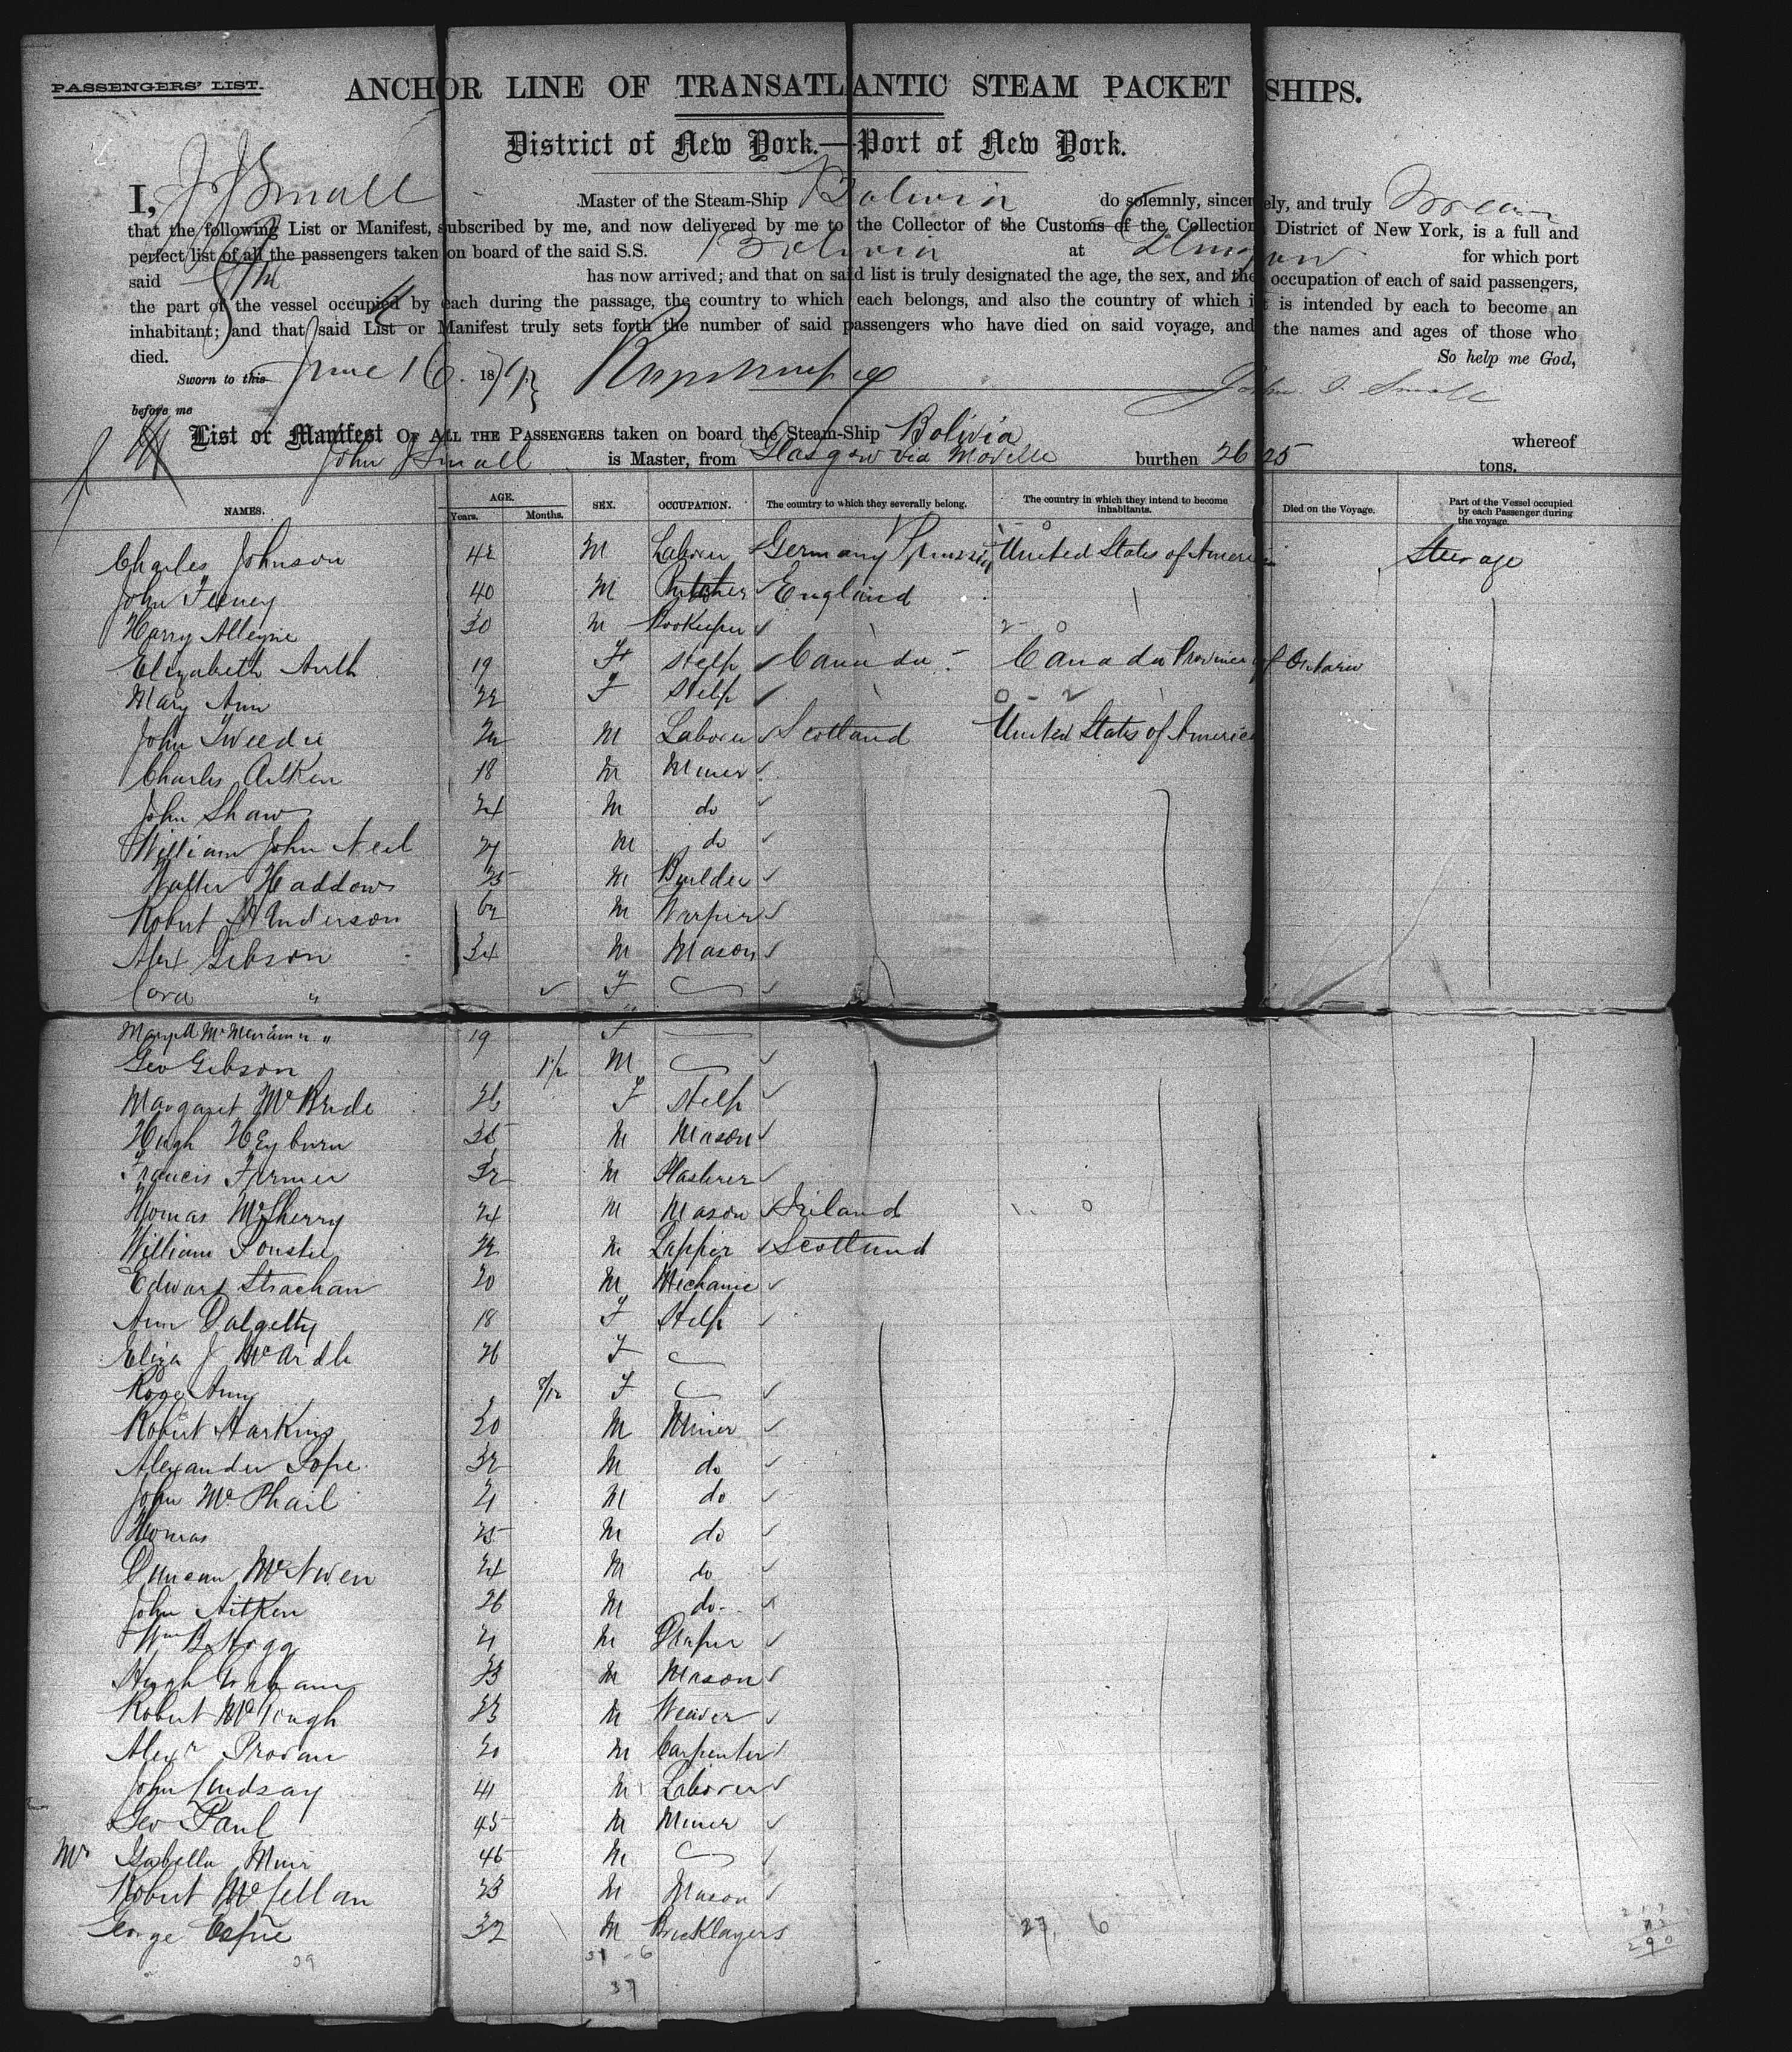 PASSENGERS' LIST.
ANCHOR LINE OF TRANSATLANTIC STEAM PACKET SHIPS.
District of New York.—Port of New York.
I, J J Small Master of the Steam-Ship Bolivia do solemnly, sincerely, and truly Swear
that the following List or Manifest, subscribed by me, and now delivered by me to the Collector of the Customs of the Collection District of New York, is a full and
perfect list of all the passengers taken on board of the said S.S. Bolivia at Glasgow for which port
said has now arrived; and that on said list is truly designated the age, the sex, and the occupation of each of said passengers,
the part of the vessel occupied by each during the passage, the country to which each belongs, and also the country of which it is intended by each to become an
inhabitant; and that said List or Manifest truly sets forth the number of said passengers who have died on said voyage, and the names and ages of those who
died. So help me God,
Sworn to this June 16. 1879 John J. Small
before me
List or Manifest OF ALL THE PASSENGERS taken on board the Steam-Ship Bolivia whereof
John J Small is Master, from Glasgow via Moville burthen 2625 tons.
NAMES. AGE. Years. Months. SEX. OCCUPATION. The country to which they severally belong. The country in which they intend to become inhabitants. Died on the Voyage. Part of the Vessel occupied by each Passenger during the voyage.
Charles Johnson 42 M Laborer Germany Prussia United States of America Steerage
John Feeney 40 M Butcher England
Harry Alleyne 30 M Bookeeper
Elizabeth 19 F Help Canada Canada Province of Ontario
Mary Ann 22 F Help
John Tweedie 22 M Laborer Scotland United States of America
Charles Aitken 18 M Miner
John Shaw 24 M do
William John Neil 21 M do
Walter Haddow 25 M Builder
Robert Anderson 62 M Warper
Alex Gibson 34 M Mason
Cora " F
19 F
Geo Gibson 1½ M
Margaret McBride 26 F Help
Hugh Heyburn 35 M Mason
Francis 32 M Plasterer
Thomas McSherry 24 M Mason Ireland
William 22 M Lapper Scotland
Edward Strachan 20 M Mechanic
Ann Dalgetty 18 F Help
Eliza J McArdle 26 F
Rose Ann F
Robert Harkins 20 M Miner
Alexander Pope 32 M do
John McPhail 21 M do
Thomas 25 M do
Duncan 24 M do
John Aitken 26 M do
Wm B Hogg 21 M Draper
Hugh Graham 23 M Mason
Robert 23 M Weaver
Alexr Provan 30 M Carpenter
John Lindsay 41 M Laborer
Geo Paul 45 M Miner
Mr Isabella Muir 46 M
Robert McLellan 23 M Mason
George Espie 32 M Bricklayers
39 31 - 6 27, 6 290
37